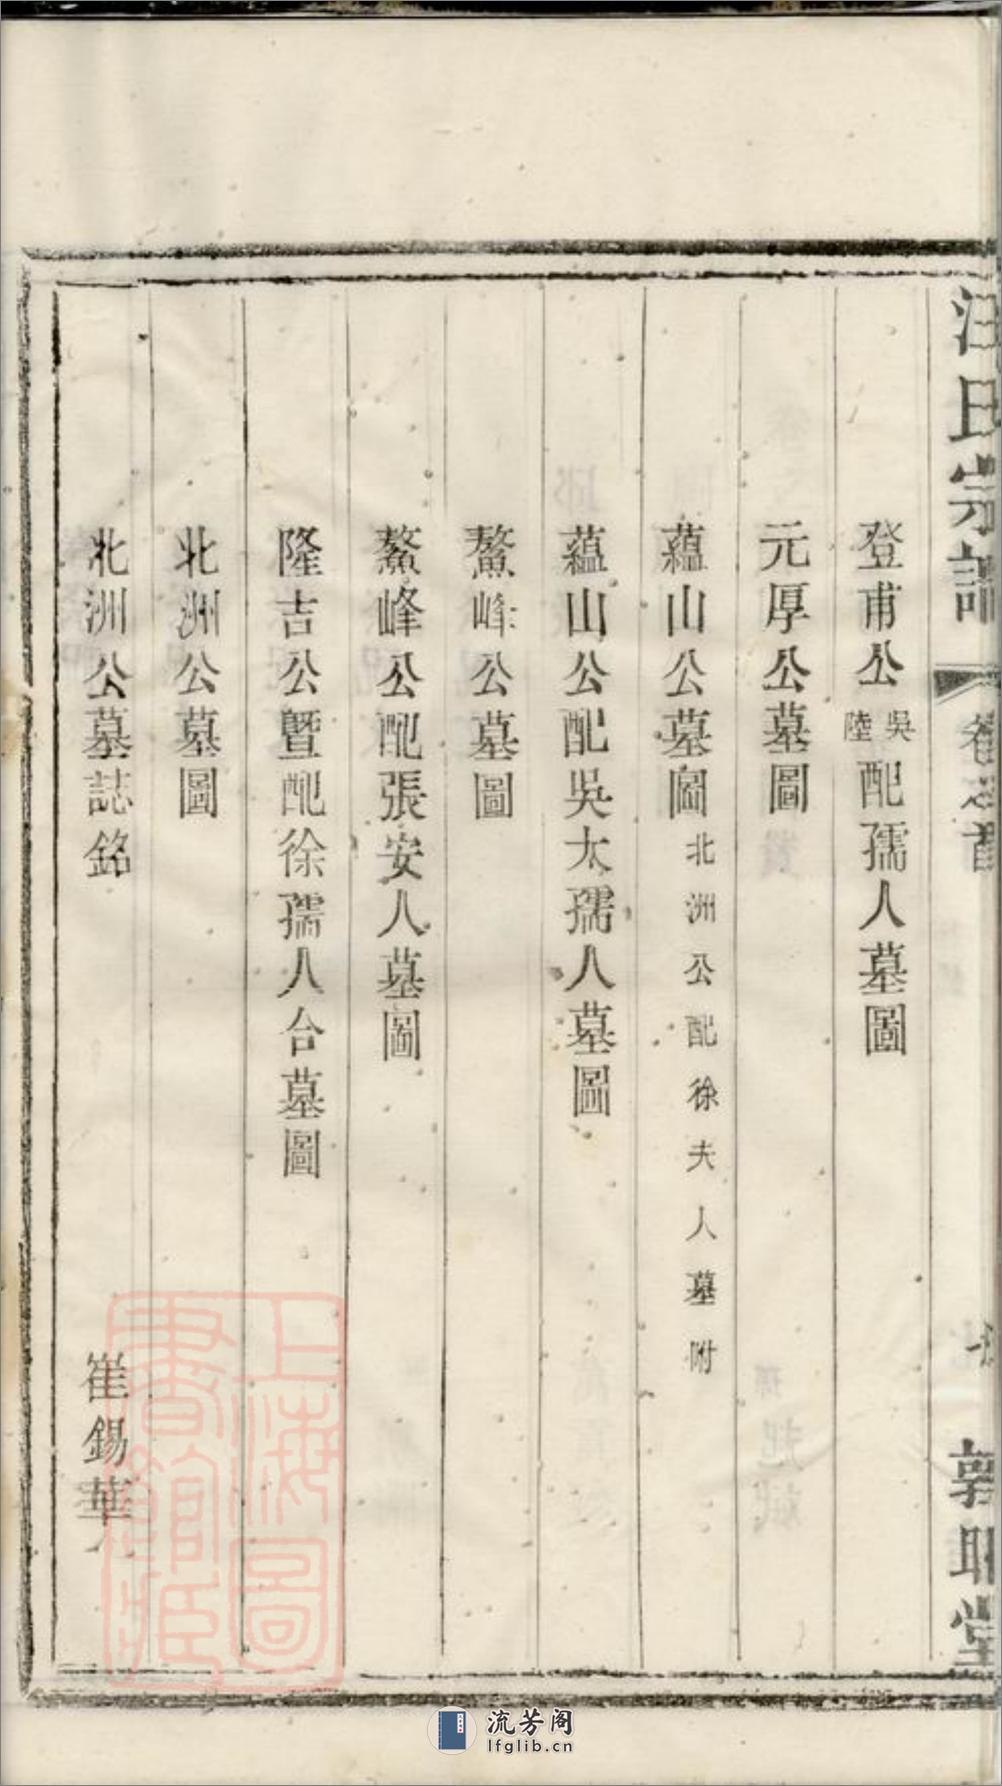 汪氏宗譜
卷之首
敦睦堂
登甫公吳陸配孺人墓圖
元厚公墓圖
蘊山公墓圖北洲公配徐夫人墓附
蘊山公配吳太孺人墓圖
鰲峰公墓圖
鰲峰公配張安人墓圖
隆吉公暨配徐孺人合墓圖
北洲公墓圖
北洲公墓誌銘 崔錫華
上海圖書館藏
流芳阁
lfglib.cn